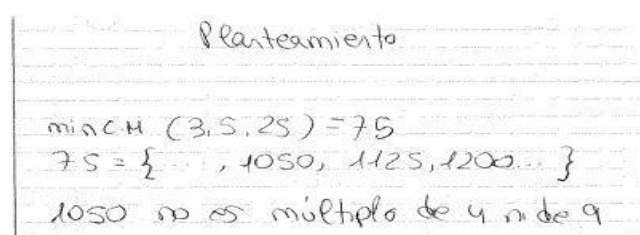 Planteamiento
minC.M (3,5,25)=75
75={ ..., 1050, 1125, 1200... }
1050 no es múltiplo de 4 ni de 9